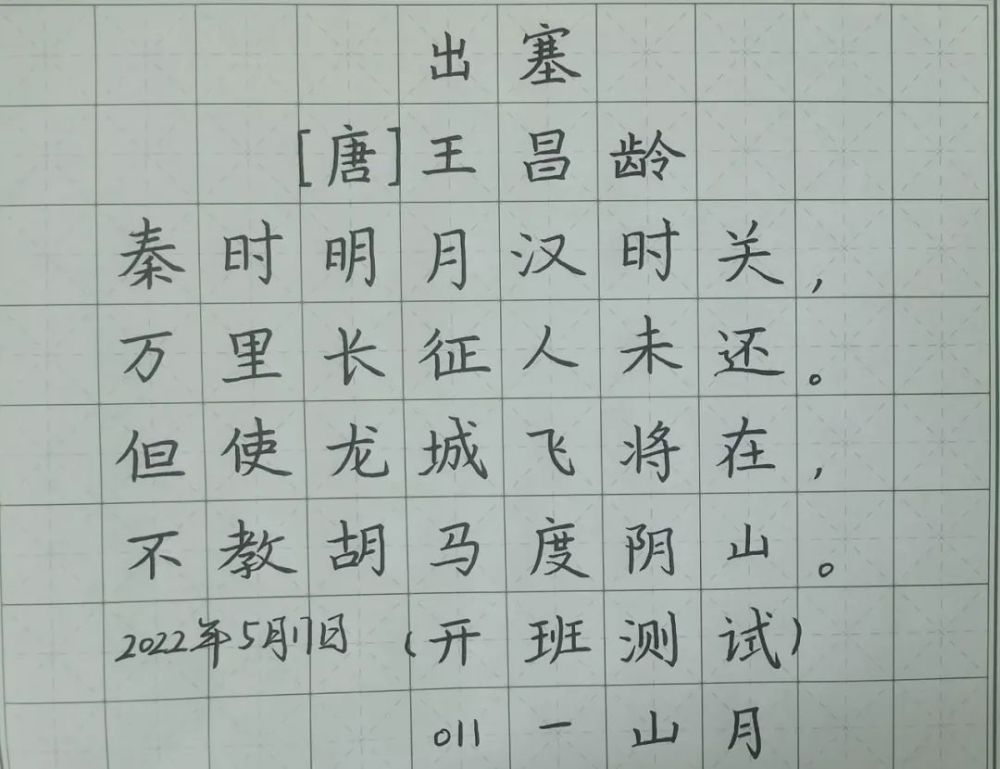 出塞
[唐]王昌龄
秦时明月汉时关,
万里长征人未还。
但使龙城飞将在,
不教胡马度阴山。
2022年5月17日 (开班测试)
011一山月